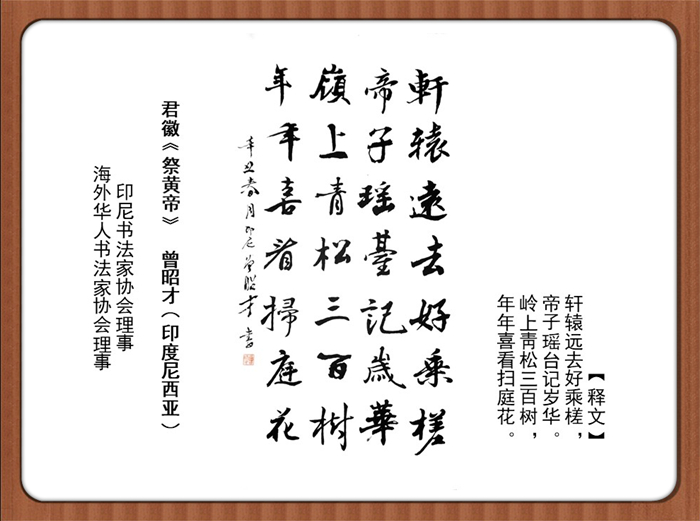 【释文】
轩辕远去好乘槎，
帝子瑶台记岁华。
岭上青松三百树，
年年喜看扫庭花。
軒辕遠去好乘槎
帝子瑶臺記歲華
嶺上青松三百樹
年年喜看掃庭花
辛丑春月印尼曾昭才書
君徽《祭黄帝》 曾昭才（印度尼西亚）
印尼书法家协会理事
海外华人书法家协会理事